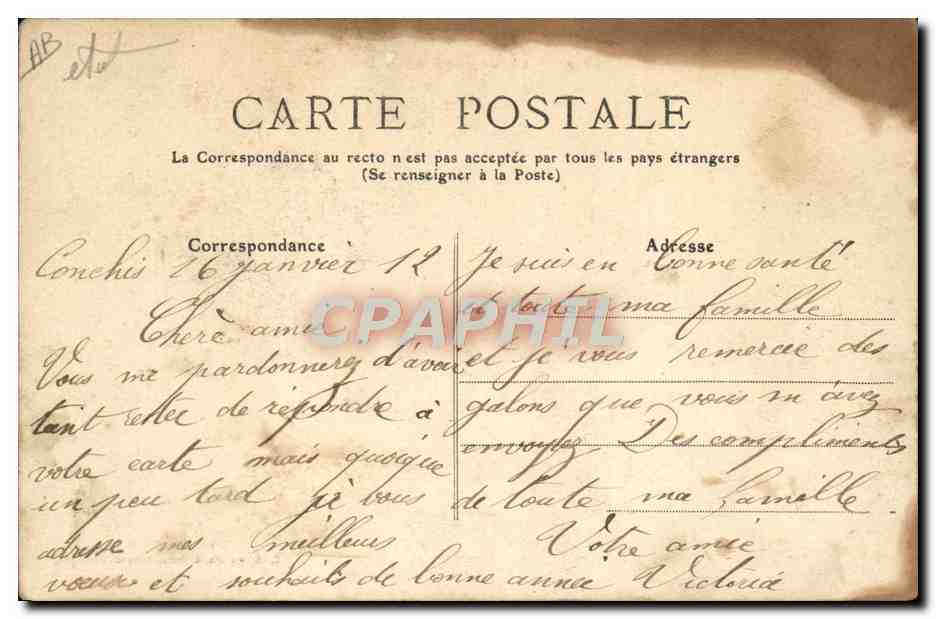 AB
CARTE POSTALE
La Correspondance au recto n'est pas acceptée par tous les pays étrangers
(Se renseigner à la Poste)
Correspondance
Conchis 26 janvier 12
Cherè amie
Vous me pardonnerez d'avoir
tant restée de répondre à
votre carte mais quoique
un peu tard je vous
adresse mes meilleurs
vœux et souhaits de bonne année
Adresse
Je suis en bonne santé
et toute ma famille
et je vous remercie des
galons que vous m'avez
envoyez Des compliments
de toute ma famille
Votre amie
Victoria
CPAPHIL